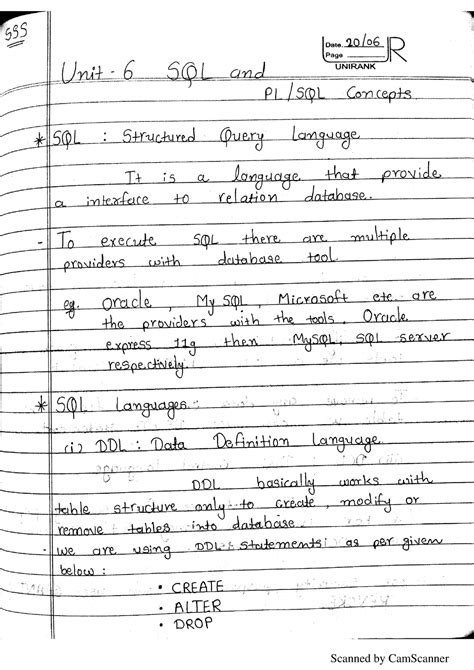 SSS
Date 20/06
Page
UNIRANK
Unit - 6 SQL and
PL/SQL Concepts
* SQL : Structured Query Language
It is a language that provide
a interface to relation database.
- To execute SQL there are multiple
providers with database tool.
eg. Oracle, MySQL, Microsoft etc. are
the providers with the tools, Oracle
express 11g then MySQL, SQL server
respectively.
* SQL Languages :
(i) DDL : Data Definition Language
DDL basically works with
table structure only to create, modify or
remove tables into database.
- we are using DDL statements as per given
below :
• CREATE
• ALTER
• DROP
Scanned by CamScanner